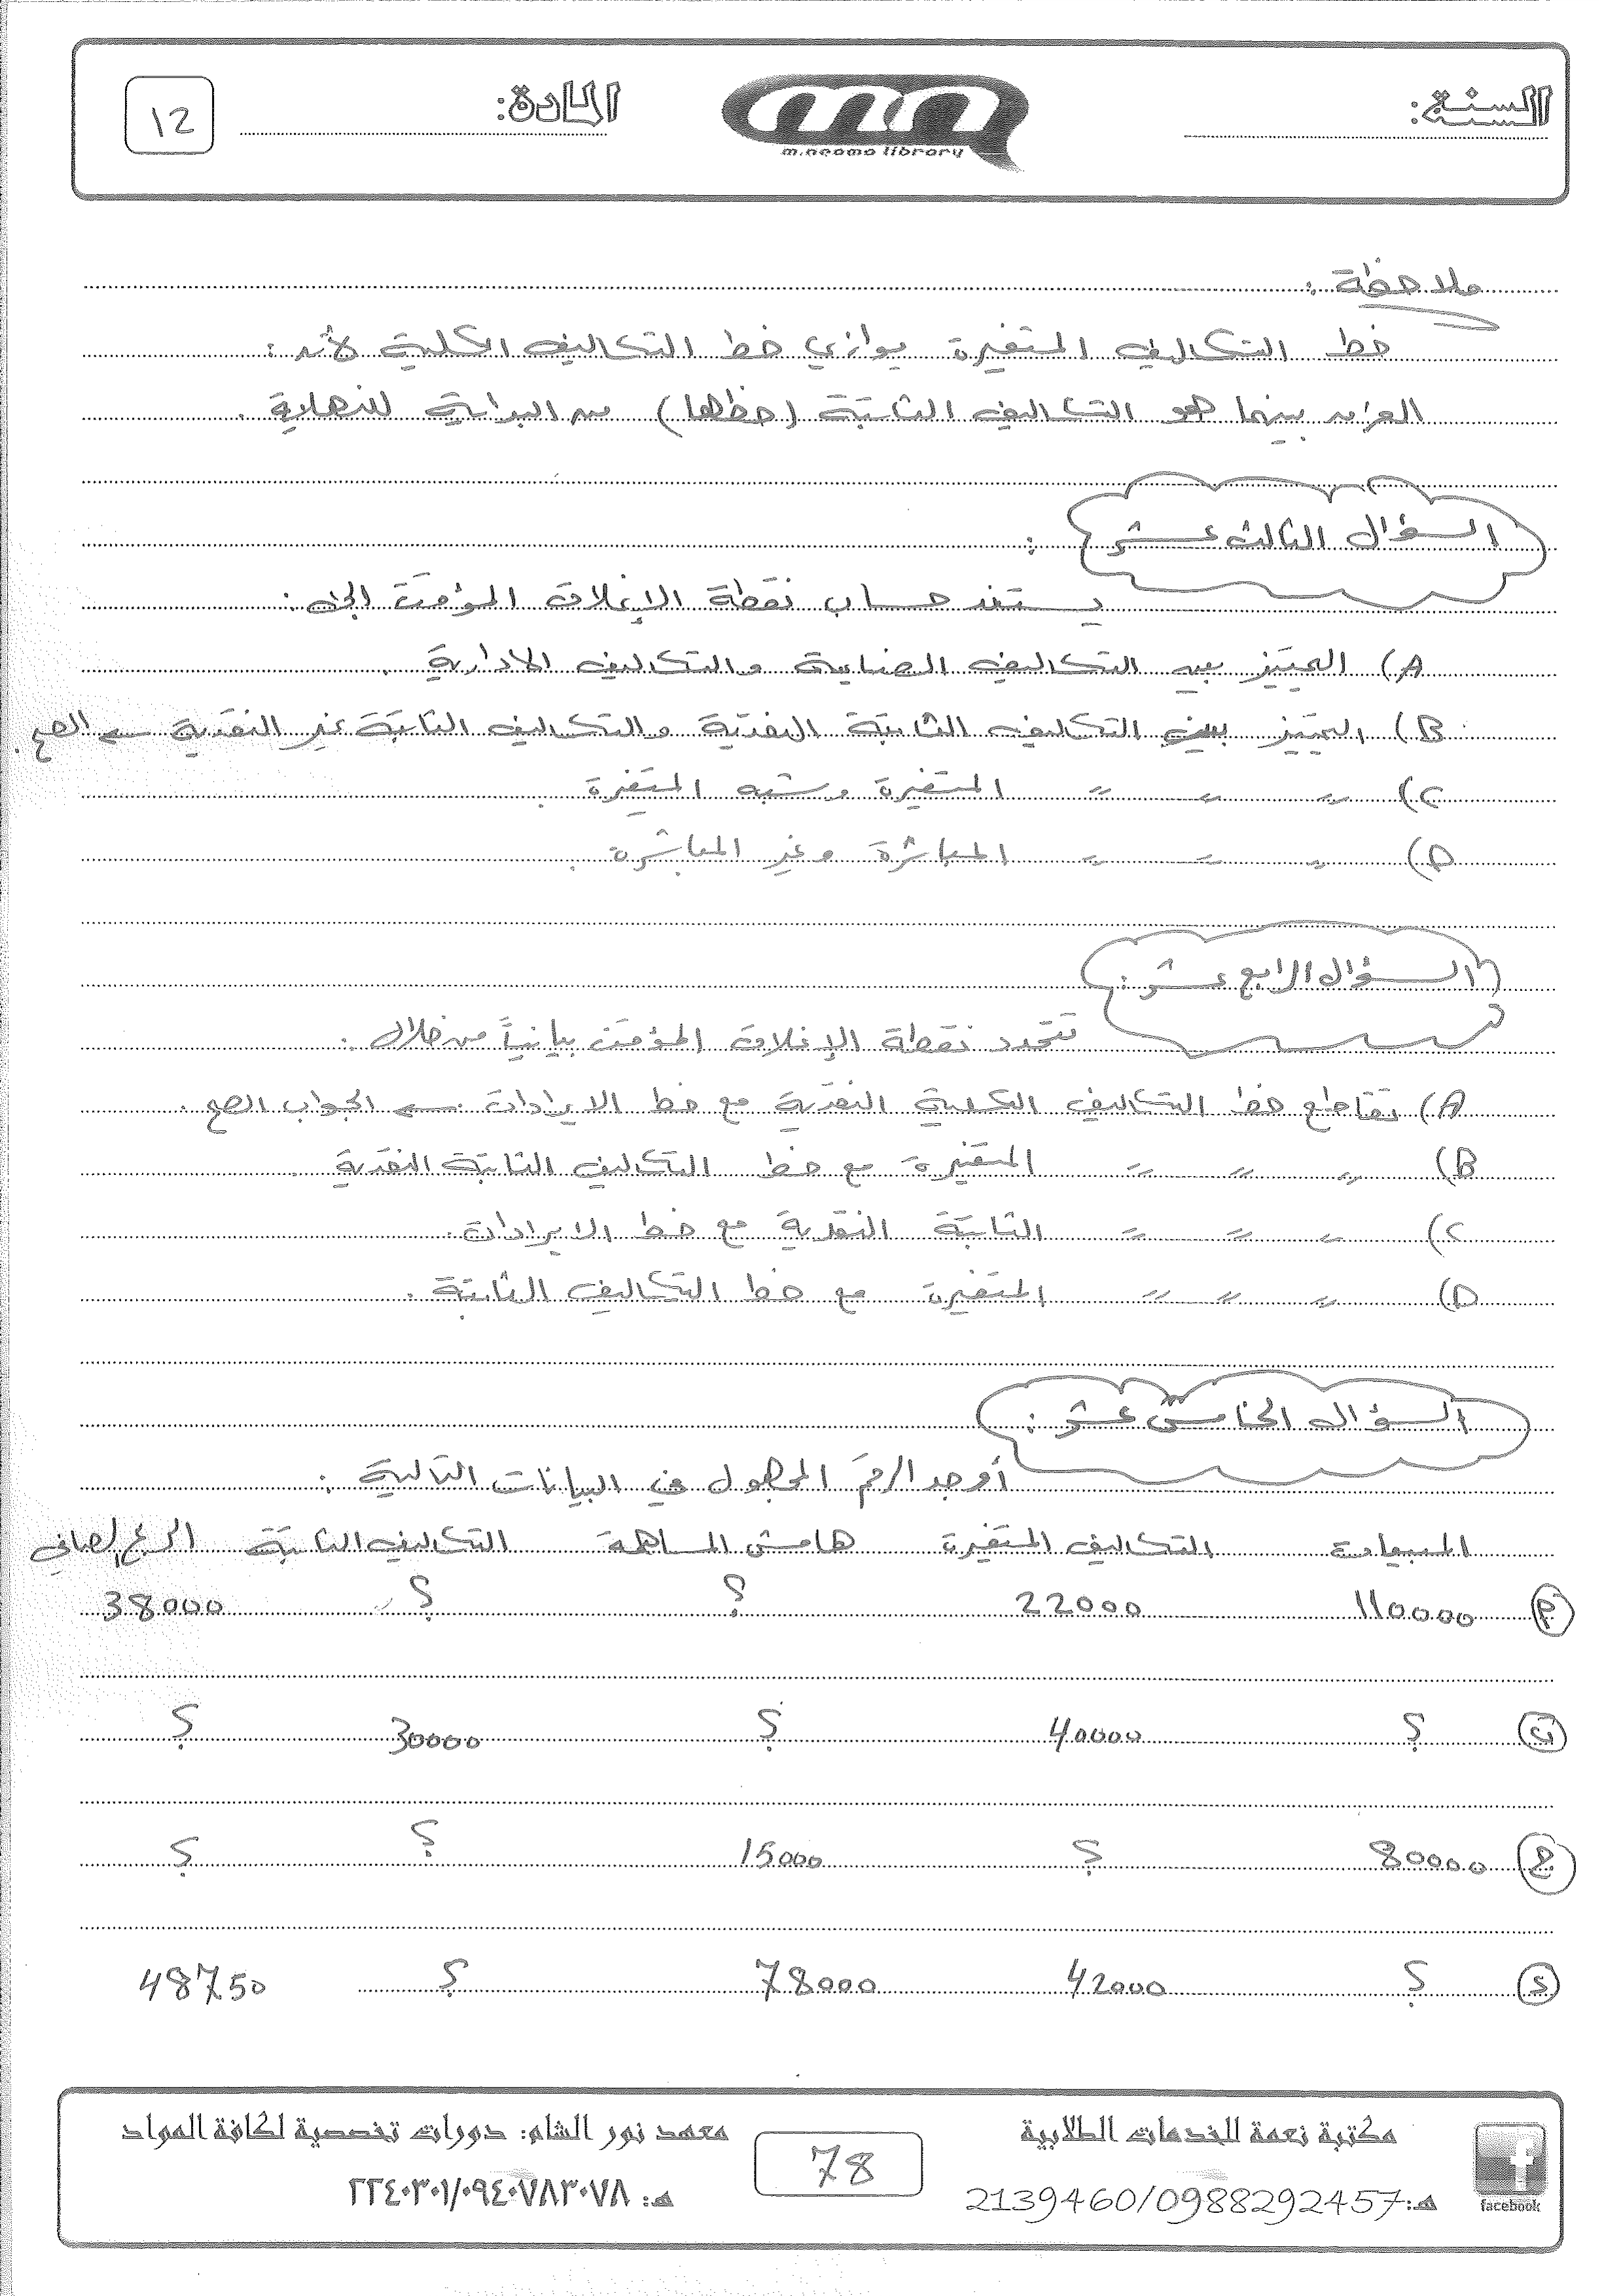 السنة:
المادة:
12
m.neama library
ملاحظة :
خط التكاليف المتغيرة يوازي خط التكاليف الكلية لأنه :
الفرق بينهما هو التكاليف الثابتة (خطها) من البداية للنهاية .
السؤال الثالث عشر :
يستند حساب نقطة الإغلاق المؤقت إلى :
A) التمييز بين التكاليف الصناعية والتكاليف الإدارية .
B) التمييز بين التكاليف الثابتة النقدية والتكاليف الثابتة غير النقدية الصح .
C) 〃 〃 〃 المتغيرة وشبه المتغيرة .
D) 〃 〃 〃 المباشرة وغير المباشرة .
السؤال الرابع عشر :
تتحدد نقطة الإغلاق المؤقت بيانياً من خلال :
A) تقاطع خط التكاليف الكلية النقدية مع خط الايرادات الجواب الصح .
B) 〃 〃 〃 المتغيرة مع خط التكاليف الثابتة النقدية .
C) 〃 〃 〃 الثابتة النقدية مع خط الايرادات .
D) 〃 〃 〃 المتغيرة مع خط التكاليف الثابتة .
السؤال الخامس عشر :
أوجد الرقم المجهول في البيانات التالية :
المبيعات التكاليف المتغيرة هامش المساهمة التكاليف الثابتة الربح الصافي
110000 22000 ؟ ؟ 38000
ب ؟ 40000 ؟ 30000 ؟
ج 80000 ؟ 15000 ؟ ؟
د ؟ 42000 78000 ؟ 48750
مكتبة نعمة للخدمات الطلابية
هـ: 2139460/0988292457
facebook
78
معهد نور الشام: دورات تخصصية لكافة المواد
هـ: ٢٢٤٠٣٠١/٠٩٤٠٧٨٣٠٧٨